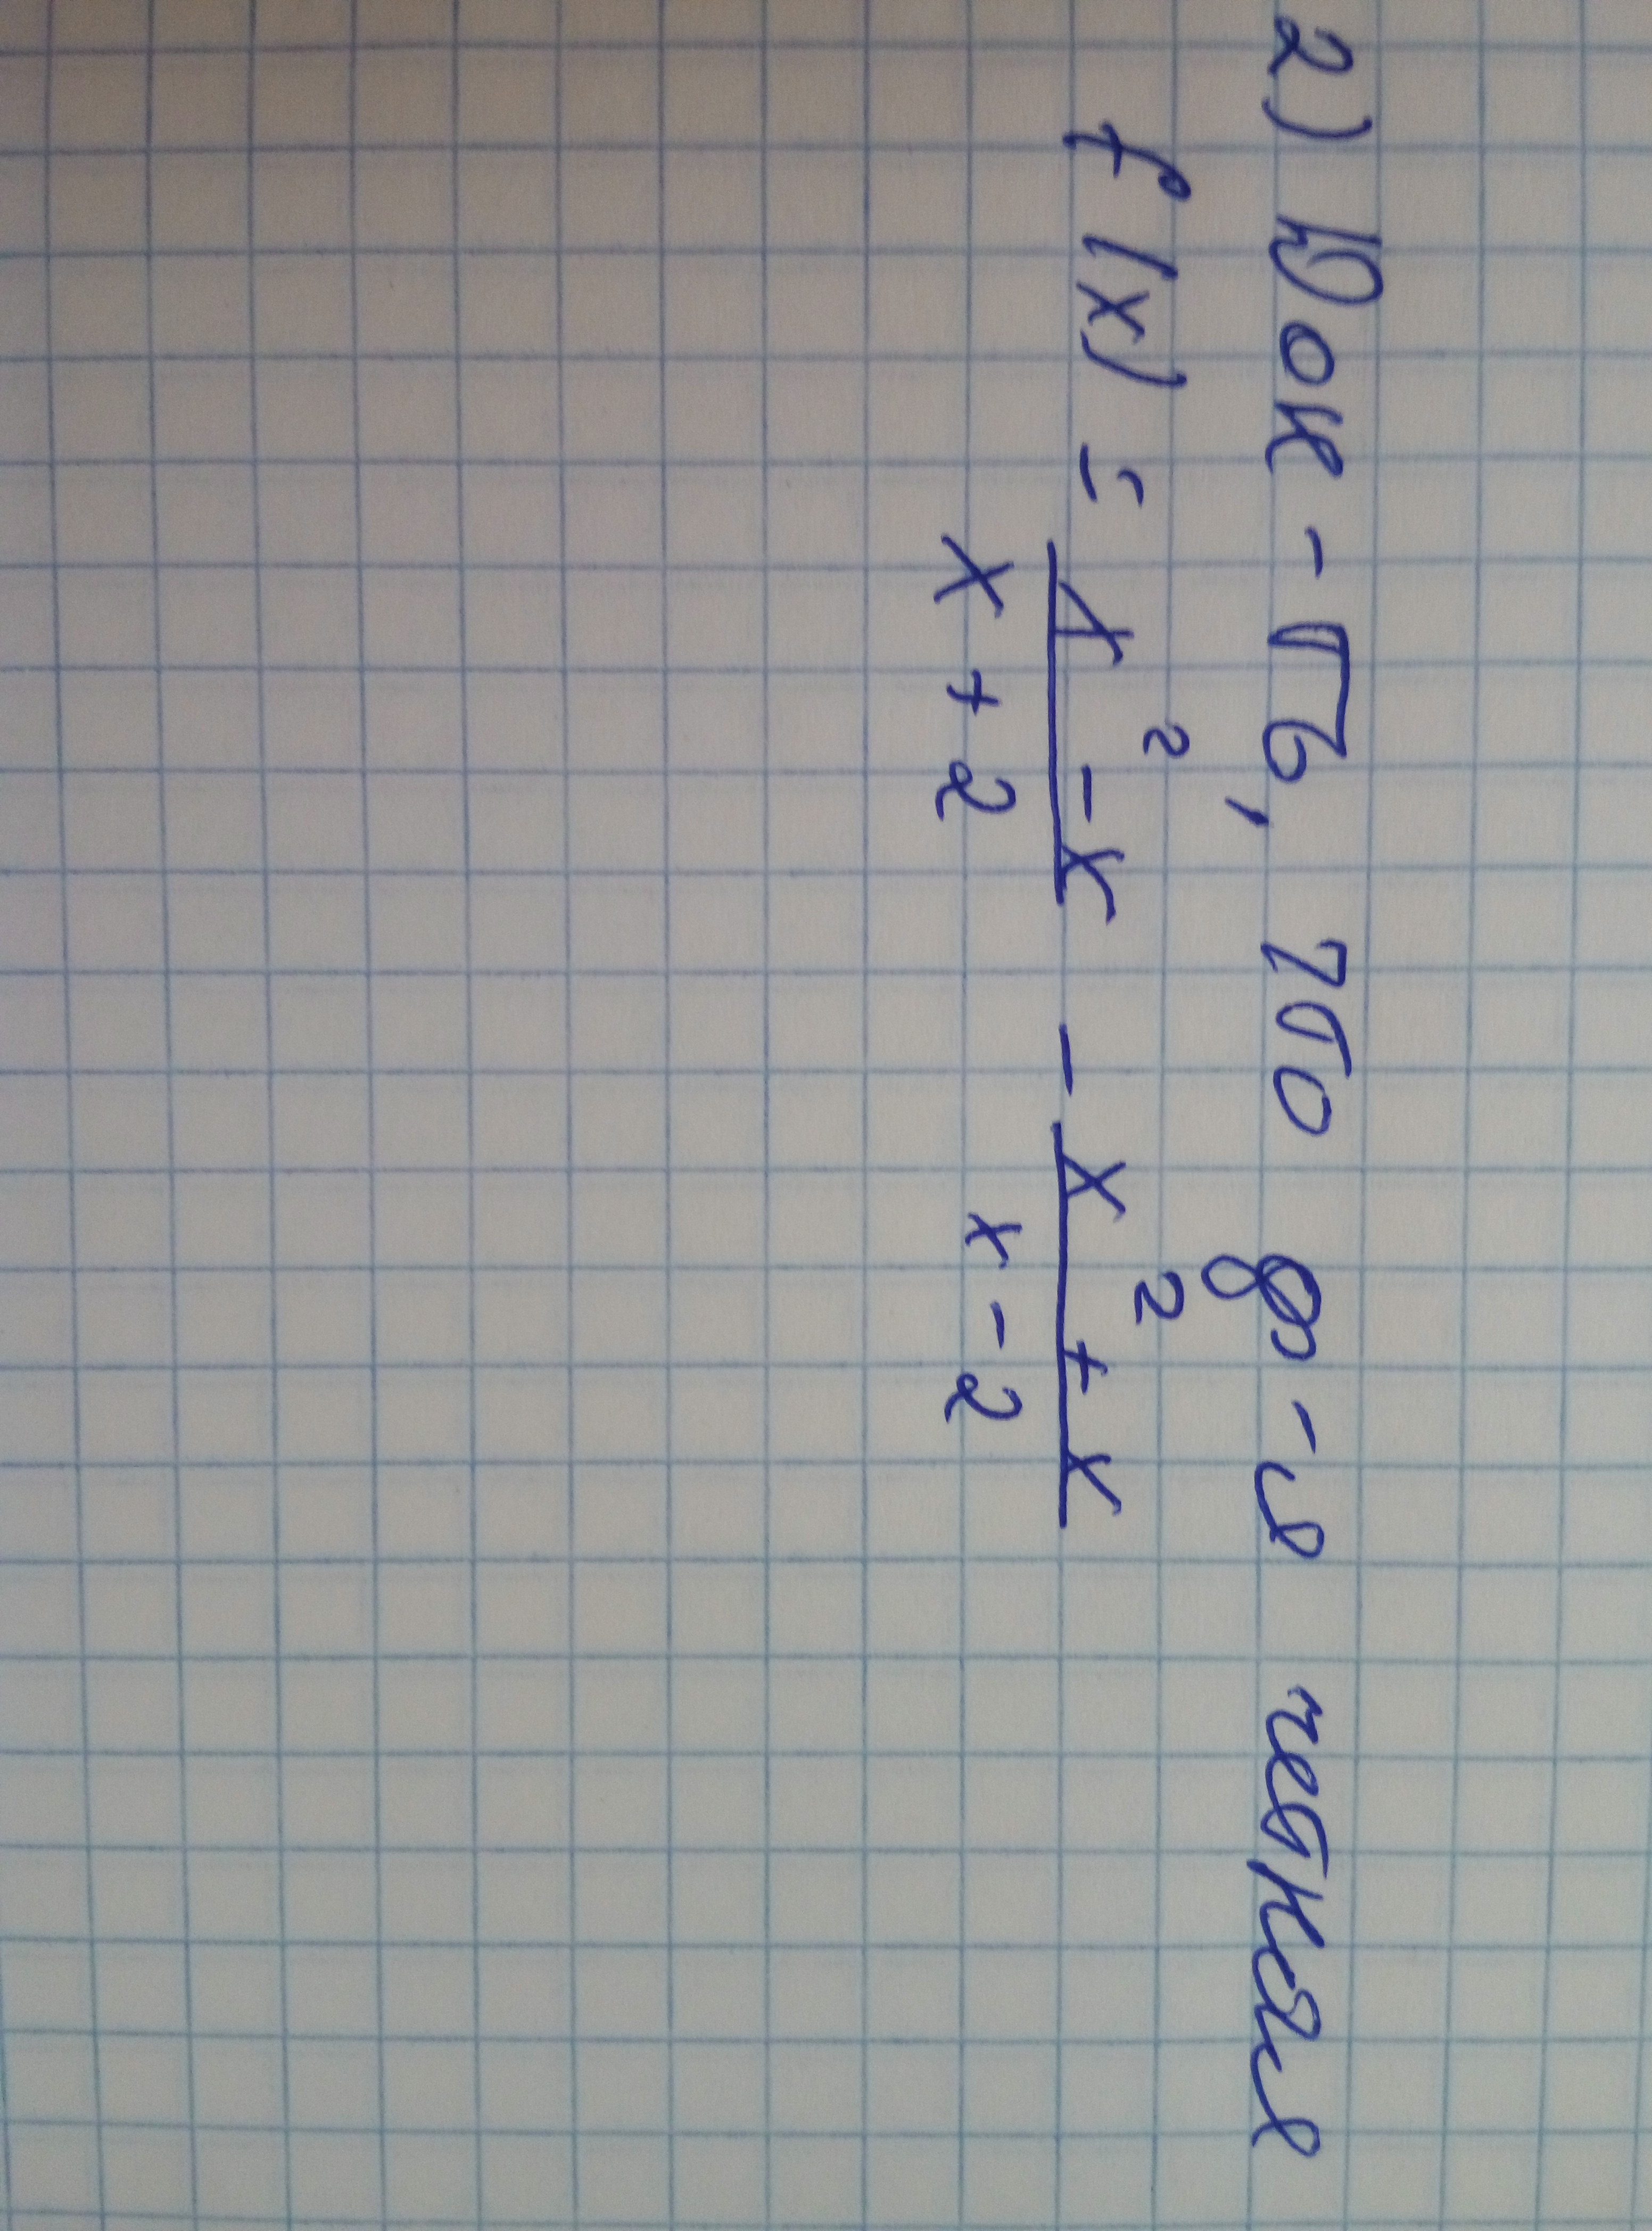 2) Док-ть, что ф-я четная
f(x) = (x² - x)/(x + 2) - (x² + x)/(x - 2)